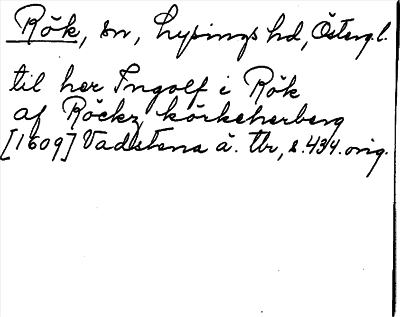 Rök, sn, Lysings hd, Östergl.
til her Ingolf i Rök
af Röckz körkeherberg
[1609] Vadstena ä. tbr, s. 434. orig.